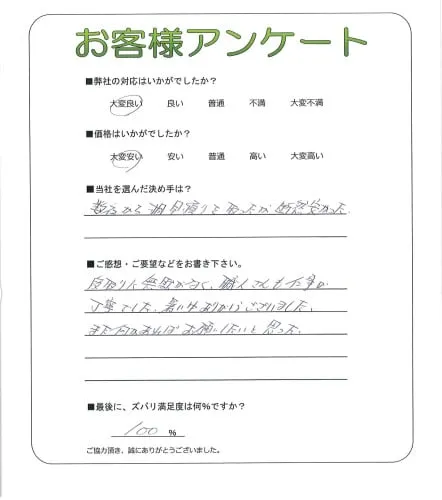 お客様アンケート
■弊社の対応はいかがでしたか？
大変良い 良い 普通 不満 大変不満
■価格はいかがでしたか？
大変安い 安い 普通 高い 大変高い
■当社を選んだ決め手は？
数社から相見積りを取ったが断然安かった
■ご感想・ご要望などをお書き下さい。
段取りに無駄がなく、職人さんも仕事が
丁寧でした。暑い中ありがとうございました。
また何かあればお願いしたいと思った。
■最後に、ズバリ満足度は何%ですか？
100 %
ご協力頂き、誠にありがとうございました。